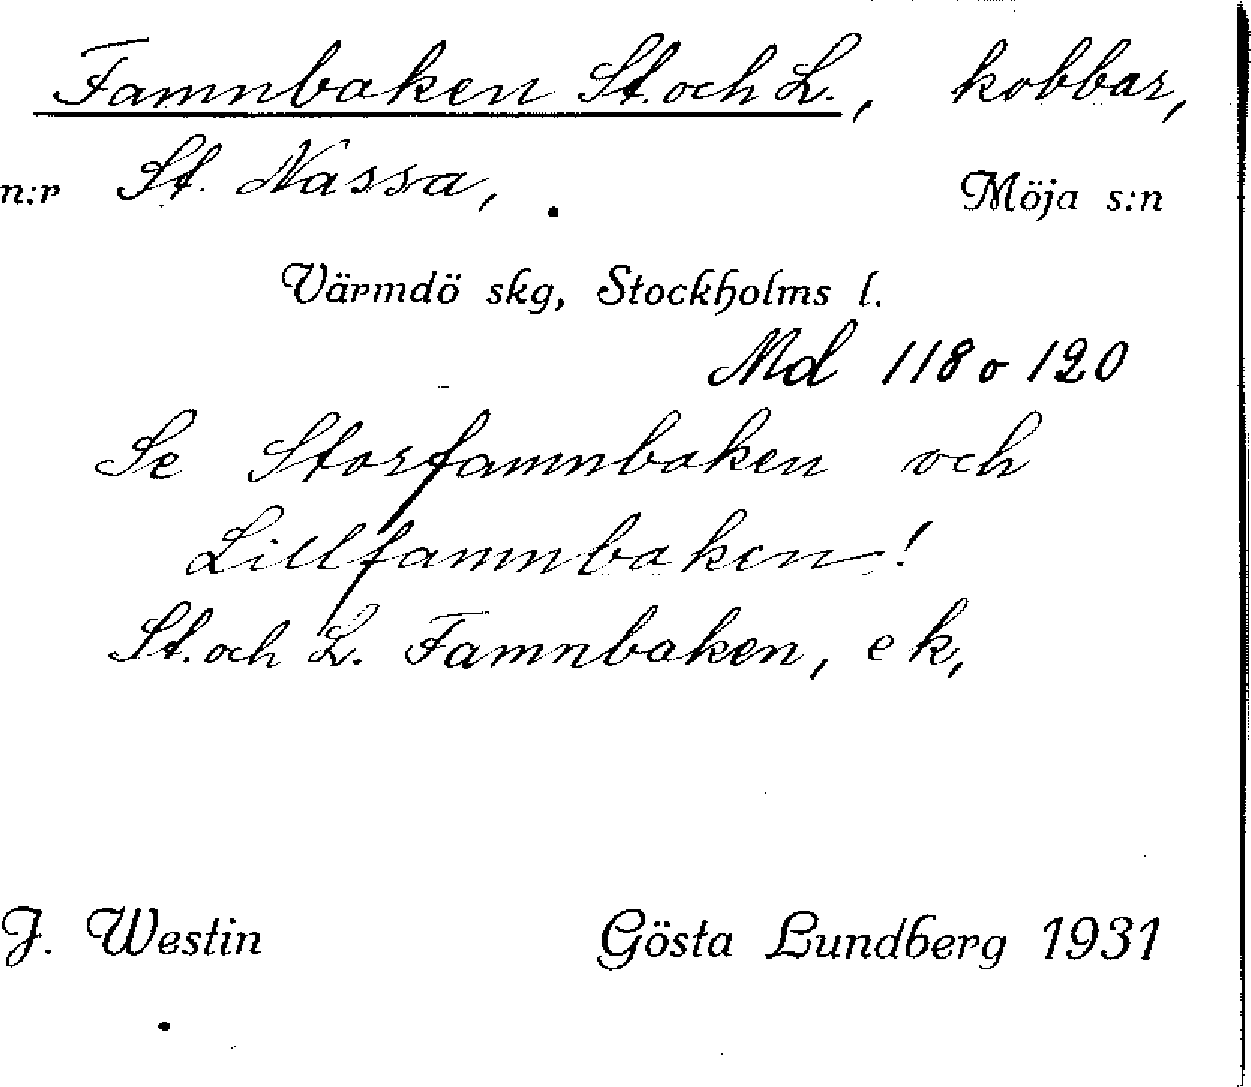 Famnbaken St. och L., kobbar,
n:r St. Nassa, . Möja s:n
Värmdö skg, Stockholms l.
Md 118 o 120
Se Storfamnbaken och
Lillfamnbaken!
St. och L. Famnbaken, ek,
J. Westin Gösta Lundberg 1931